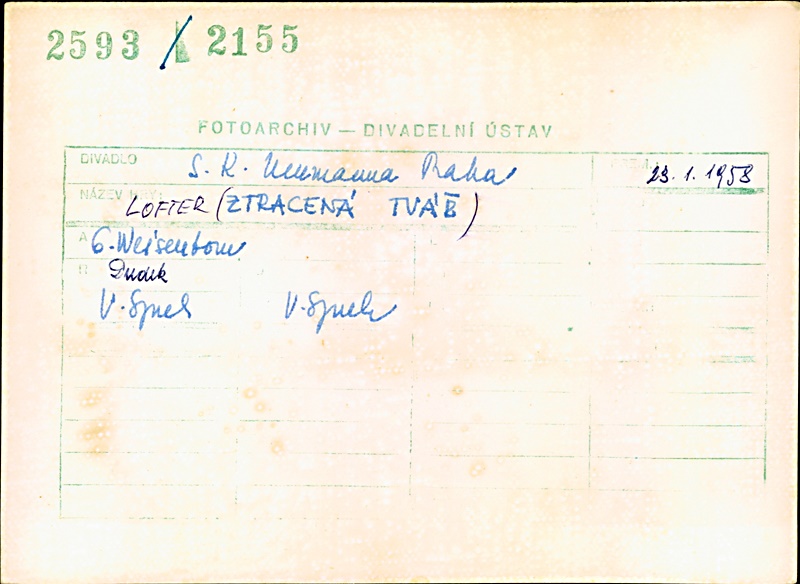 2593 / 2155
FOTOARCHIV — DIVADELNÍ ÚSTAV
DIVADLO S. K. Neumanna Praha 23. 1. 1958
NÁZEV HRY: LOFTER (ZTRACENÁ TVÁŘ)
A G. Weisenborn
R Dudek
V. Špuel V. Špuel